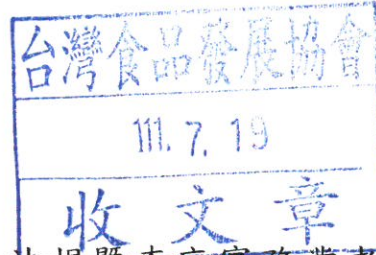 台灣食品發展協會
111. 7. 19
收文章